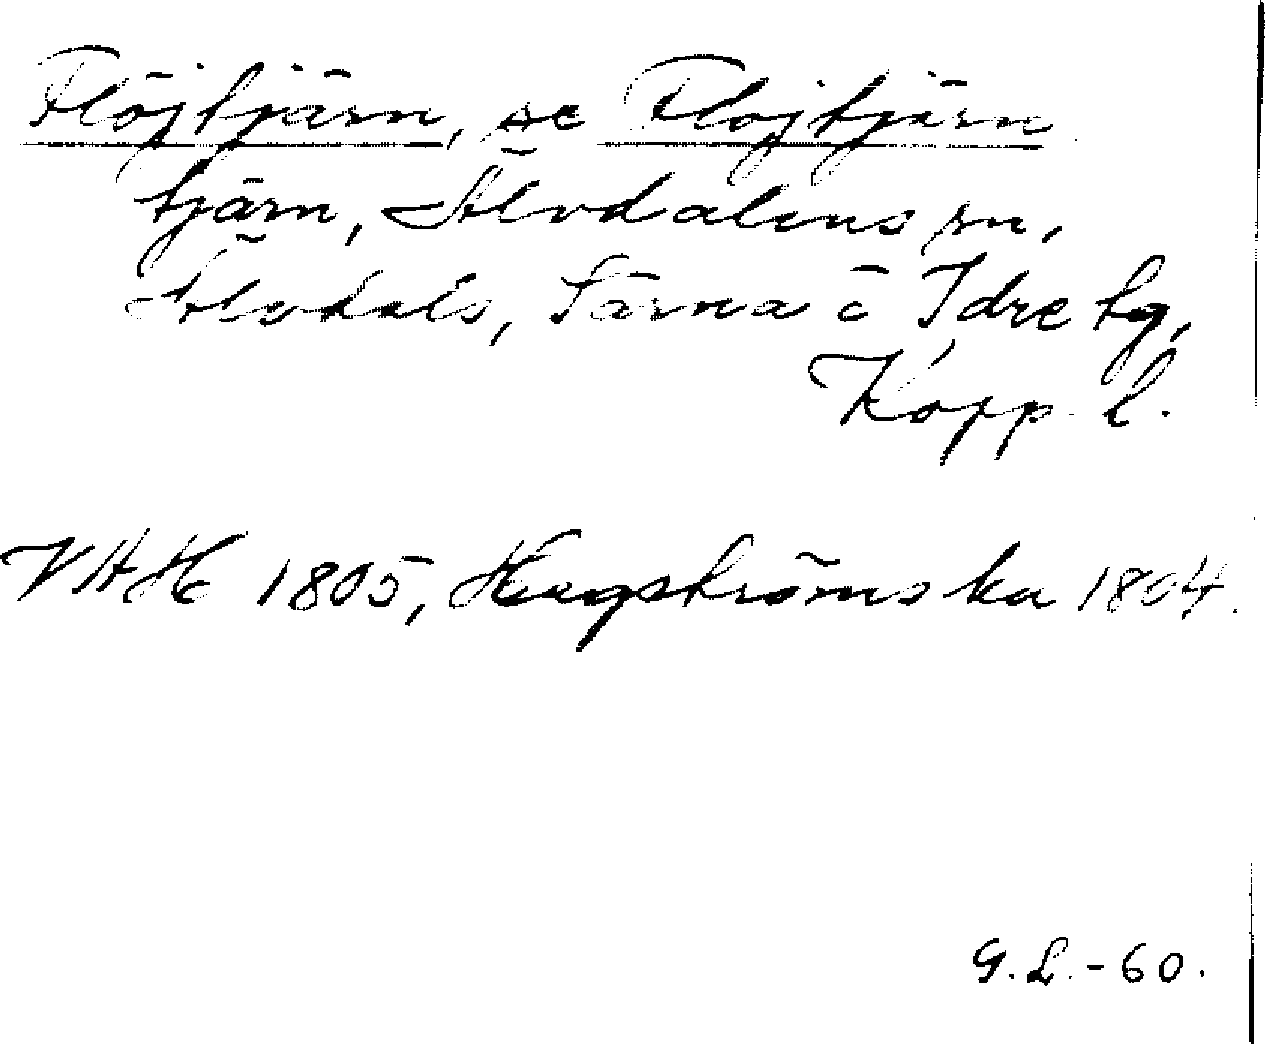 Flöjtjärn, se Flojtjärn
tjärn, Älvdalens sn,
Älvdals, Särna ö Idre tg,
Kopp. l.
VHH 1805, Hagströmska 1804.
G.L.-60.